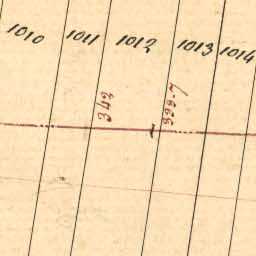 1010 1011 1012 1013 1014
342
399.7